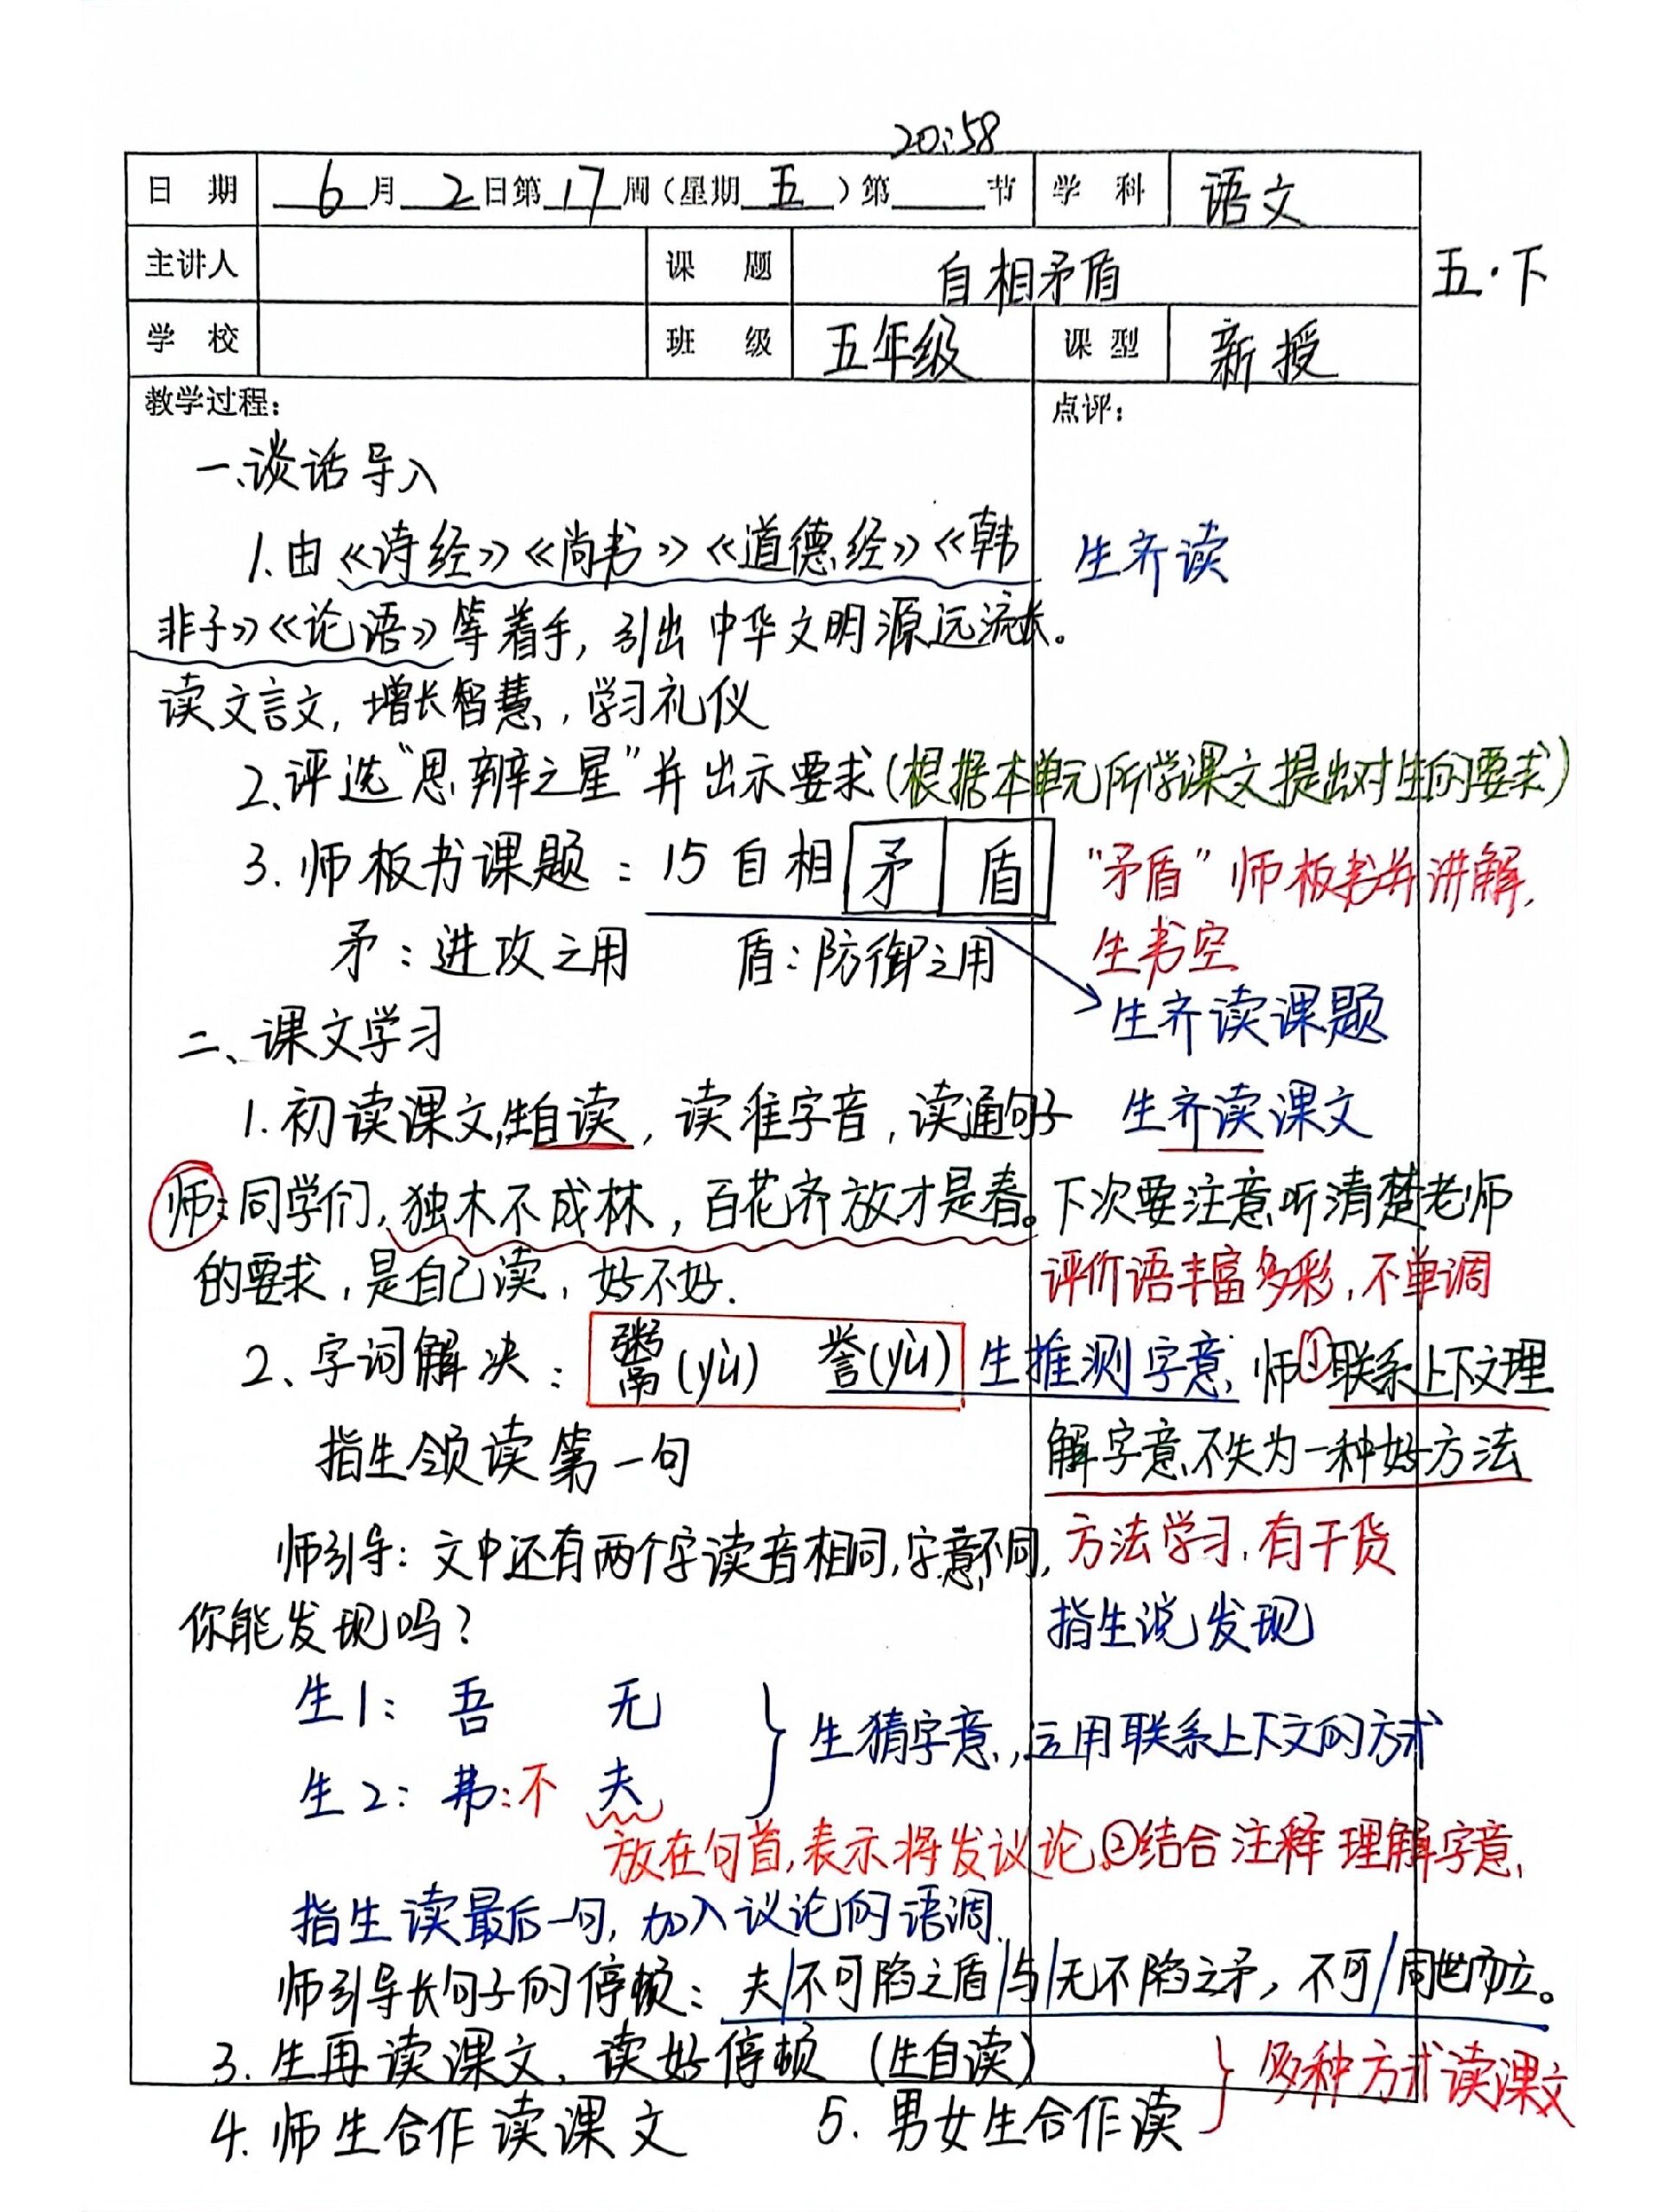 20:58
日 期 6月2日第17周(星期五)第____节 学 科 语文
主讲人 课 题 自相矛盾 五·下
学 校 班 级 五年级 课 型 新授
教学过程: 点评:
一、谈话导入
1.由《诗经》《尚书》《道德经》《韩 生齐读
非子》《论语》等着手,引出中华文明源远流长。
读文言文,增长智慧,学习礼仪
2、评选“思辨之星”并出示要求(根据本单元所学课文提出对生的要求)
3.师板书课题:15自相矛盾 “矛盾”师板书并讲解,
矛:进攻之用 盾:防御之用 生书空
生齐读课题
二、课文学习
1.初读课文,生自读,读准字音,读通句子 生齐读课文
师:同学们,独木不成林,百花齐放才是春。下次要注意听清楚老师
的要求,是自己读,好不好. 评价语丰富多彩,不单调
2、字词解决:鬻(yù) 誉(yù) 生推测字意, 师:①联系上下文理
指生领读第一句 解字意不失为一种好方法
师引导:文中还有两个字读音相同,字意不同, 方法学习,有干货
你能发现吗? 指生说发现
生1: 吾 无 } 生猜字意,运用联系上下文的方式
生2: 弗:不 夫
放在句首,表示将发议论。②结合注释理解字意,
指生读最后一句,加入议论的语调.
师引导长句子的停顿:夫/不可陷之盾/与/无不陷之矛,不可/同世而立。
3.生再读课文,读好停顿(生自读) } 多种方式读课文
4.师生合作读课文 5.男女生合作读